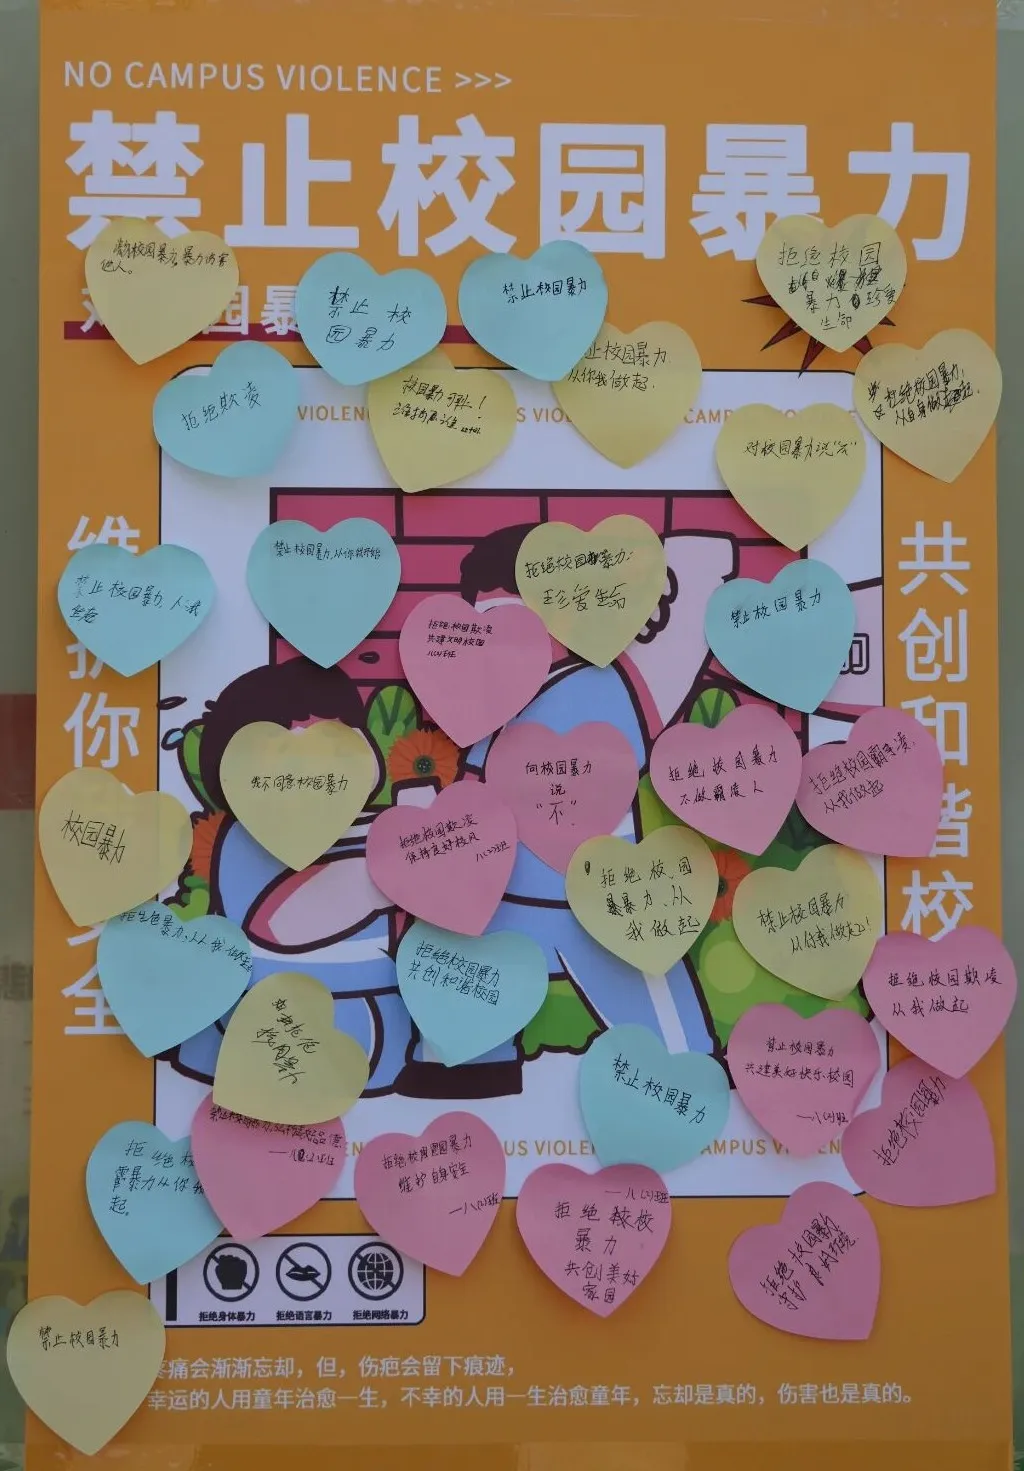 NO CAMPUS VIOLENCE >>>
禁止校园暴力
校园暴力,暴力伤害
他人。
禁止校
园暴力
禁止校园暴力
拒绝校园
暴力珍爱
生命
园暴
止校园暴力
从你我做起.
拒绝欺凌
校园暴力可耻!
拒绝校园暴力,
从自身做起.
VIOLEN
US VIO
CAMPUS
对校园暴力说“不”
维护你
全
共创和谐校
禁止校园暴力,从你我开始
拒绝校园暴力:
珍爱生命
禁止校园暴力,人人
禁止校园暴力
拒绝校园欺凌
共建文明校园
八(4)班
我不同意校园暴力
向校园暴力
说
“不”.
拒绝校园暴力
不做霸凌人
拒绝校园霸凌,
从我做起
校园暴力
拒绝校园欺凌
保持良好校风
八(2)班
拒绝校园
暴力、从
我做起
禁止校园暴力
从你我做起!
暴力,从我做
拒绝校园暴力
共创和谐校园
拒绝校园欺凌
从我做起
拒绝
校园
暴力
禁止校园暴力
禁止校园暴力
共建美好快乐校园
—八(4)班
拒绝校园暴力
拒绝校
暴力从你我
起。
拒绝校园暴力
维护自身安全
—八(2)班
EN
US VIOLENCE
CAMPUS VIOL
—八(2)班
拒绝校
暴力
共创美好
家园
拒绝校园暴力
守护良好环境
拒绝身体暴力
拒绝语言暴力
拒绝网络暴力
禁止校园暴力
疼痛会渐渐忘却,但,伤疤会留下痕迹,
幸运的人用童年治愈一生,不幸的人用一生治愈童年,忘却是真的,伤害也是真的。